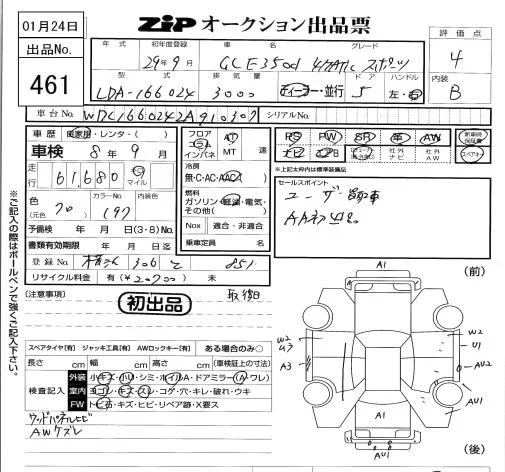 01月24日
ZiP オークション出品票
出品No.
461
年式 初年度登録 車名 グレード
29年9月 GLE350d 4MATIC スポーツ
評価点
4
型式 排気量 ドア ハンドル
LDA-166024 3000 ディーラー・並行 5 左・右
内装
B
車台No. WDC1660242A910307 シリアルNo.
車歴 自家用・レンタ・( )
車検 8年9月
走行 61,680 km マイル
色(元色) カラーNo. 内装色
クロ 197
予備検 年 月 日(3・8)No.
書類有効期限 年 月 日迄
登録No. 306 851
リサイクル料金 有(¥ )無
フロア コラム インパネ AT MT 速
冷房
無・C・AC・AAC
燃料
ガソリン・軽油・電気・その他( )
Nox 適合・非適合
乗車定員 名
PS PW SR 革 AW 新車時保証書
ナビ TV エアB 社外ナビ 社外AW スペアキー
※上記太枠内は標準装備品
セールスポイント
ユーザー買取車
AA初出品
※ご記入の際はボールペンで強くご記入下さい。
[注意事項] 取後日
初出品
スペアタイヤ[有] ジャッキ工具[有] AWロックキー[有] ある場合のみ○
長さ cm 幅 cm 高さ cm (車検証上の寸法)
検査記入
外装 小キズ・小凹・シミ・ホイルA・ドアミラー(A・ワレ)
室内 ヨゴレ・キズ・スレ・コゲ・穴・キレ・破れ・ウキ
FW トビ石・キズ・ヒビ・リペア跡・X要ス
ウッドパネルヒビ
AWケズレ
(前)
A1
W2
A3
W2
U1
AU2
AU1
A1
AU1
(後)